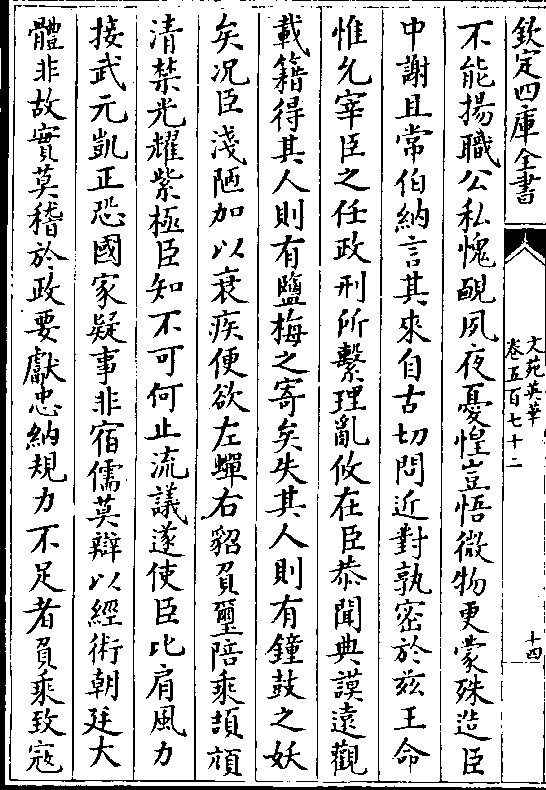 欽定四庫全書
文苑英華
卷五百七十二
十四
不能揚職公私愧靦夙夜憂惶豈悟微物更蒙殊造臣
中謝且常伯納言其來自古切問近對孰密於兹王命
惟允宰臣之任政刑所繫理亂攸在臣恭聞典謨遠觀
載籍得其人則有鹽梅之寄矣失其人則有鐘鼓之妖
矣况臣淺陋加以衰疾便欲左蟬右貂負璽陪乘頡頏
清禁光耀紫極臣知不可何止流議遂使臣比肩風力
接武元凱正恐國家疑事非宿儒莫辯以經術朝廷大
體非故實莫稽於政要獻忠納規力不足者負乘致寇